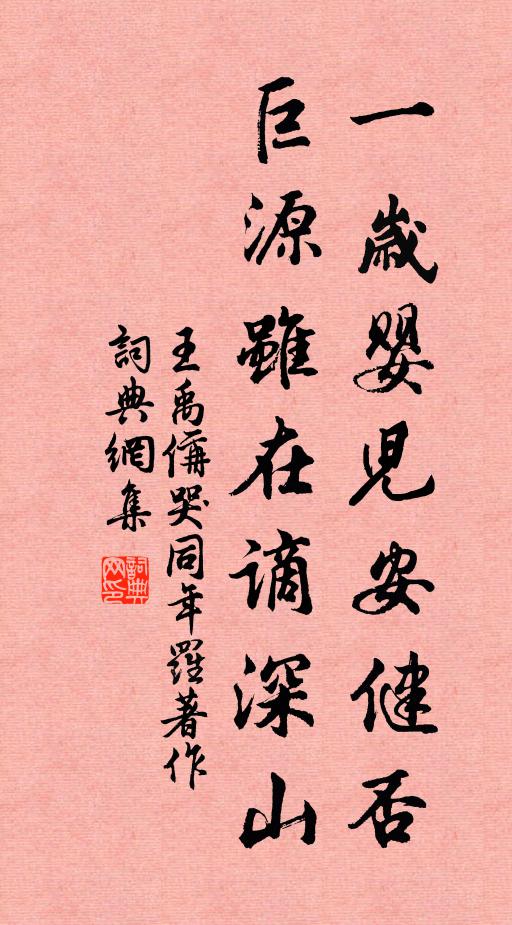 一歲嬰兒安健否
巨源雖在謫深山
王禹偁哭同年羅著作
詞典網集
詞典网印